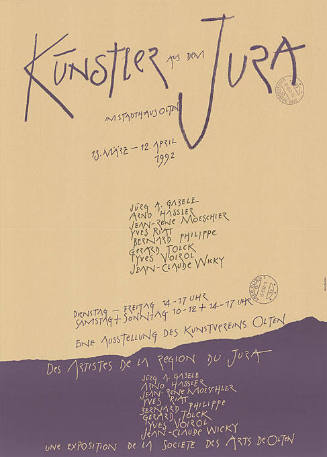 KÜNSTLER AUS DEM JURA
IM STADTHAUS OLTEN
13. MÄRZ – 12. APRIL
1992
JÜRG A. GABELE
ARNO HASSLER
JEAN-RENÉ MOESCHLER
YVES RIAT
BERNARD PHILIPPE
GERARD TOLCK
YVES VOIROL
JEAN-CLAUDE WICKY
DIENSTAG – FREITAG 14-17 UHR
SAMSTAG + SONNTAG 10-12 + 14-17 UHR
EINE AUSSTELLUNG DES KUNSTVEREINS OLTEN
DES ARTISTES DE LA REGION DU JURA
JÜRG A. GABELE
ARNO HASSLER
JEAN-RENÉ MOESCHLER
YVES RIAT
BERNARD PHILIPPE
GERARD TOLCK
YVES VOIROL
JEAN-CLAUDE WICKY
UNE EXPOSITION DE LA SOCIETE DES ARTS DE OLTEN